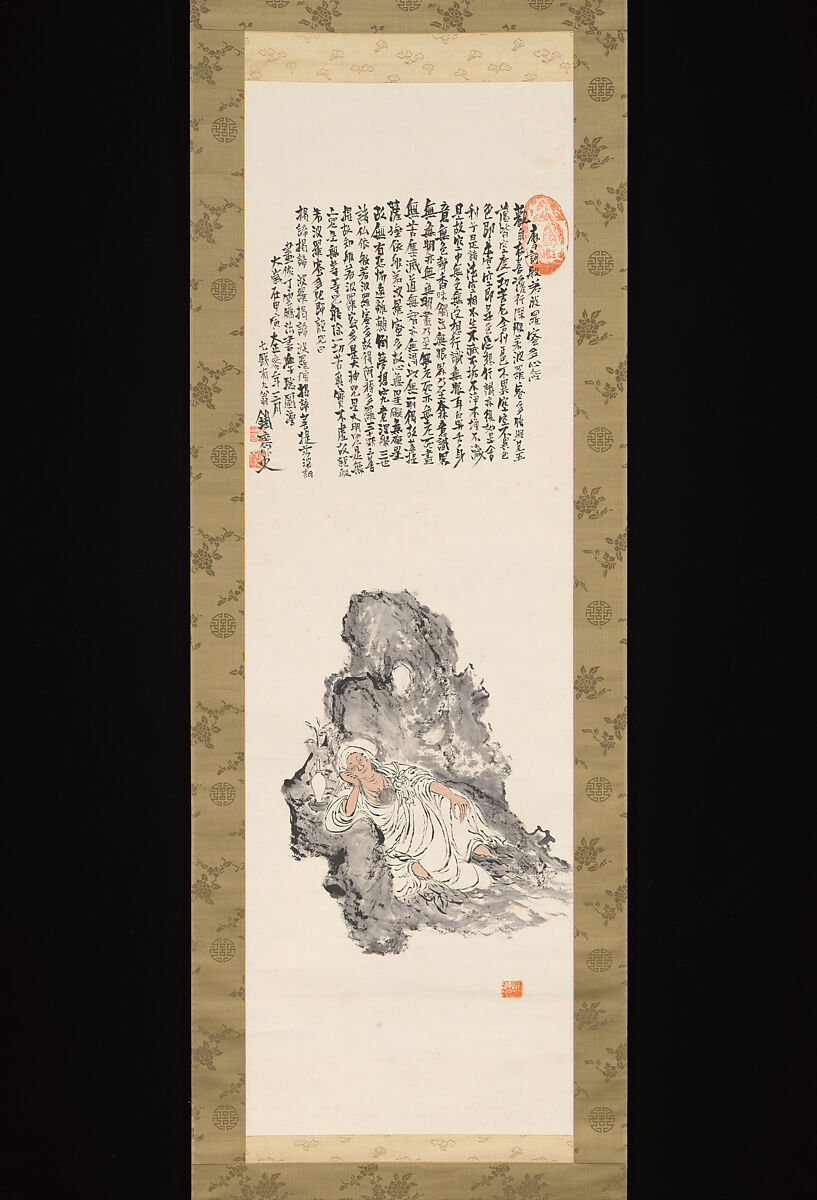 唐譯般若波羅蜜多心經
觀自在菩薩行深般若波羅蜜多時照見五
蘊皆空度一切苦厄舍利子色不異空空不異色
色即是空空即是色受想行識亦復如是舍
利子是諸法空相不生不滅不垢不淨不增不減
是故空中無色無受想行識無眼耳鼻舌身
意無色聲香味觸法無眼界乃至無意識界
無無明亦無無明盡乃至無老死亦無老死盡
無苦集滅道無智亦無得以無所得故菩提
薩埵依般若波羅蜜多故心無罣礙無罣礙
故無有恐怖遠離顛倒夢想究竟涅槃三世
諸仏依般若波羅蜜多故得阿耨多羅三藐三菩
提故知般若波羅蜜多是大神咒是大明咒是無
上咒是無等等咒能除一切苦真實不虛故說般
若波羅蜜多咒即說咒曰
揭諦揭諦波羅揭諦波羅僧揭諦菩提娑婆訶
畫依丁雲鵬法書學
大歲在甲寅大正三年三月
七十有九翁鐵齋史